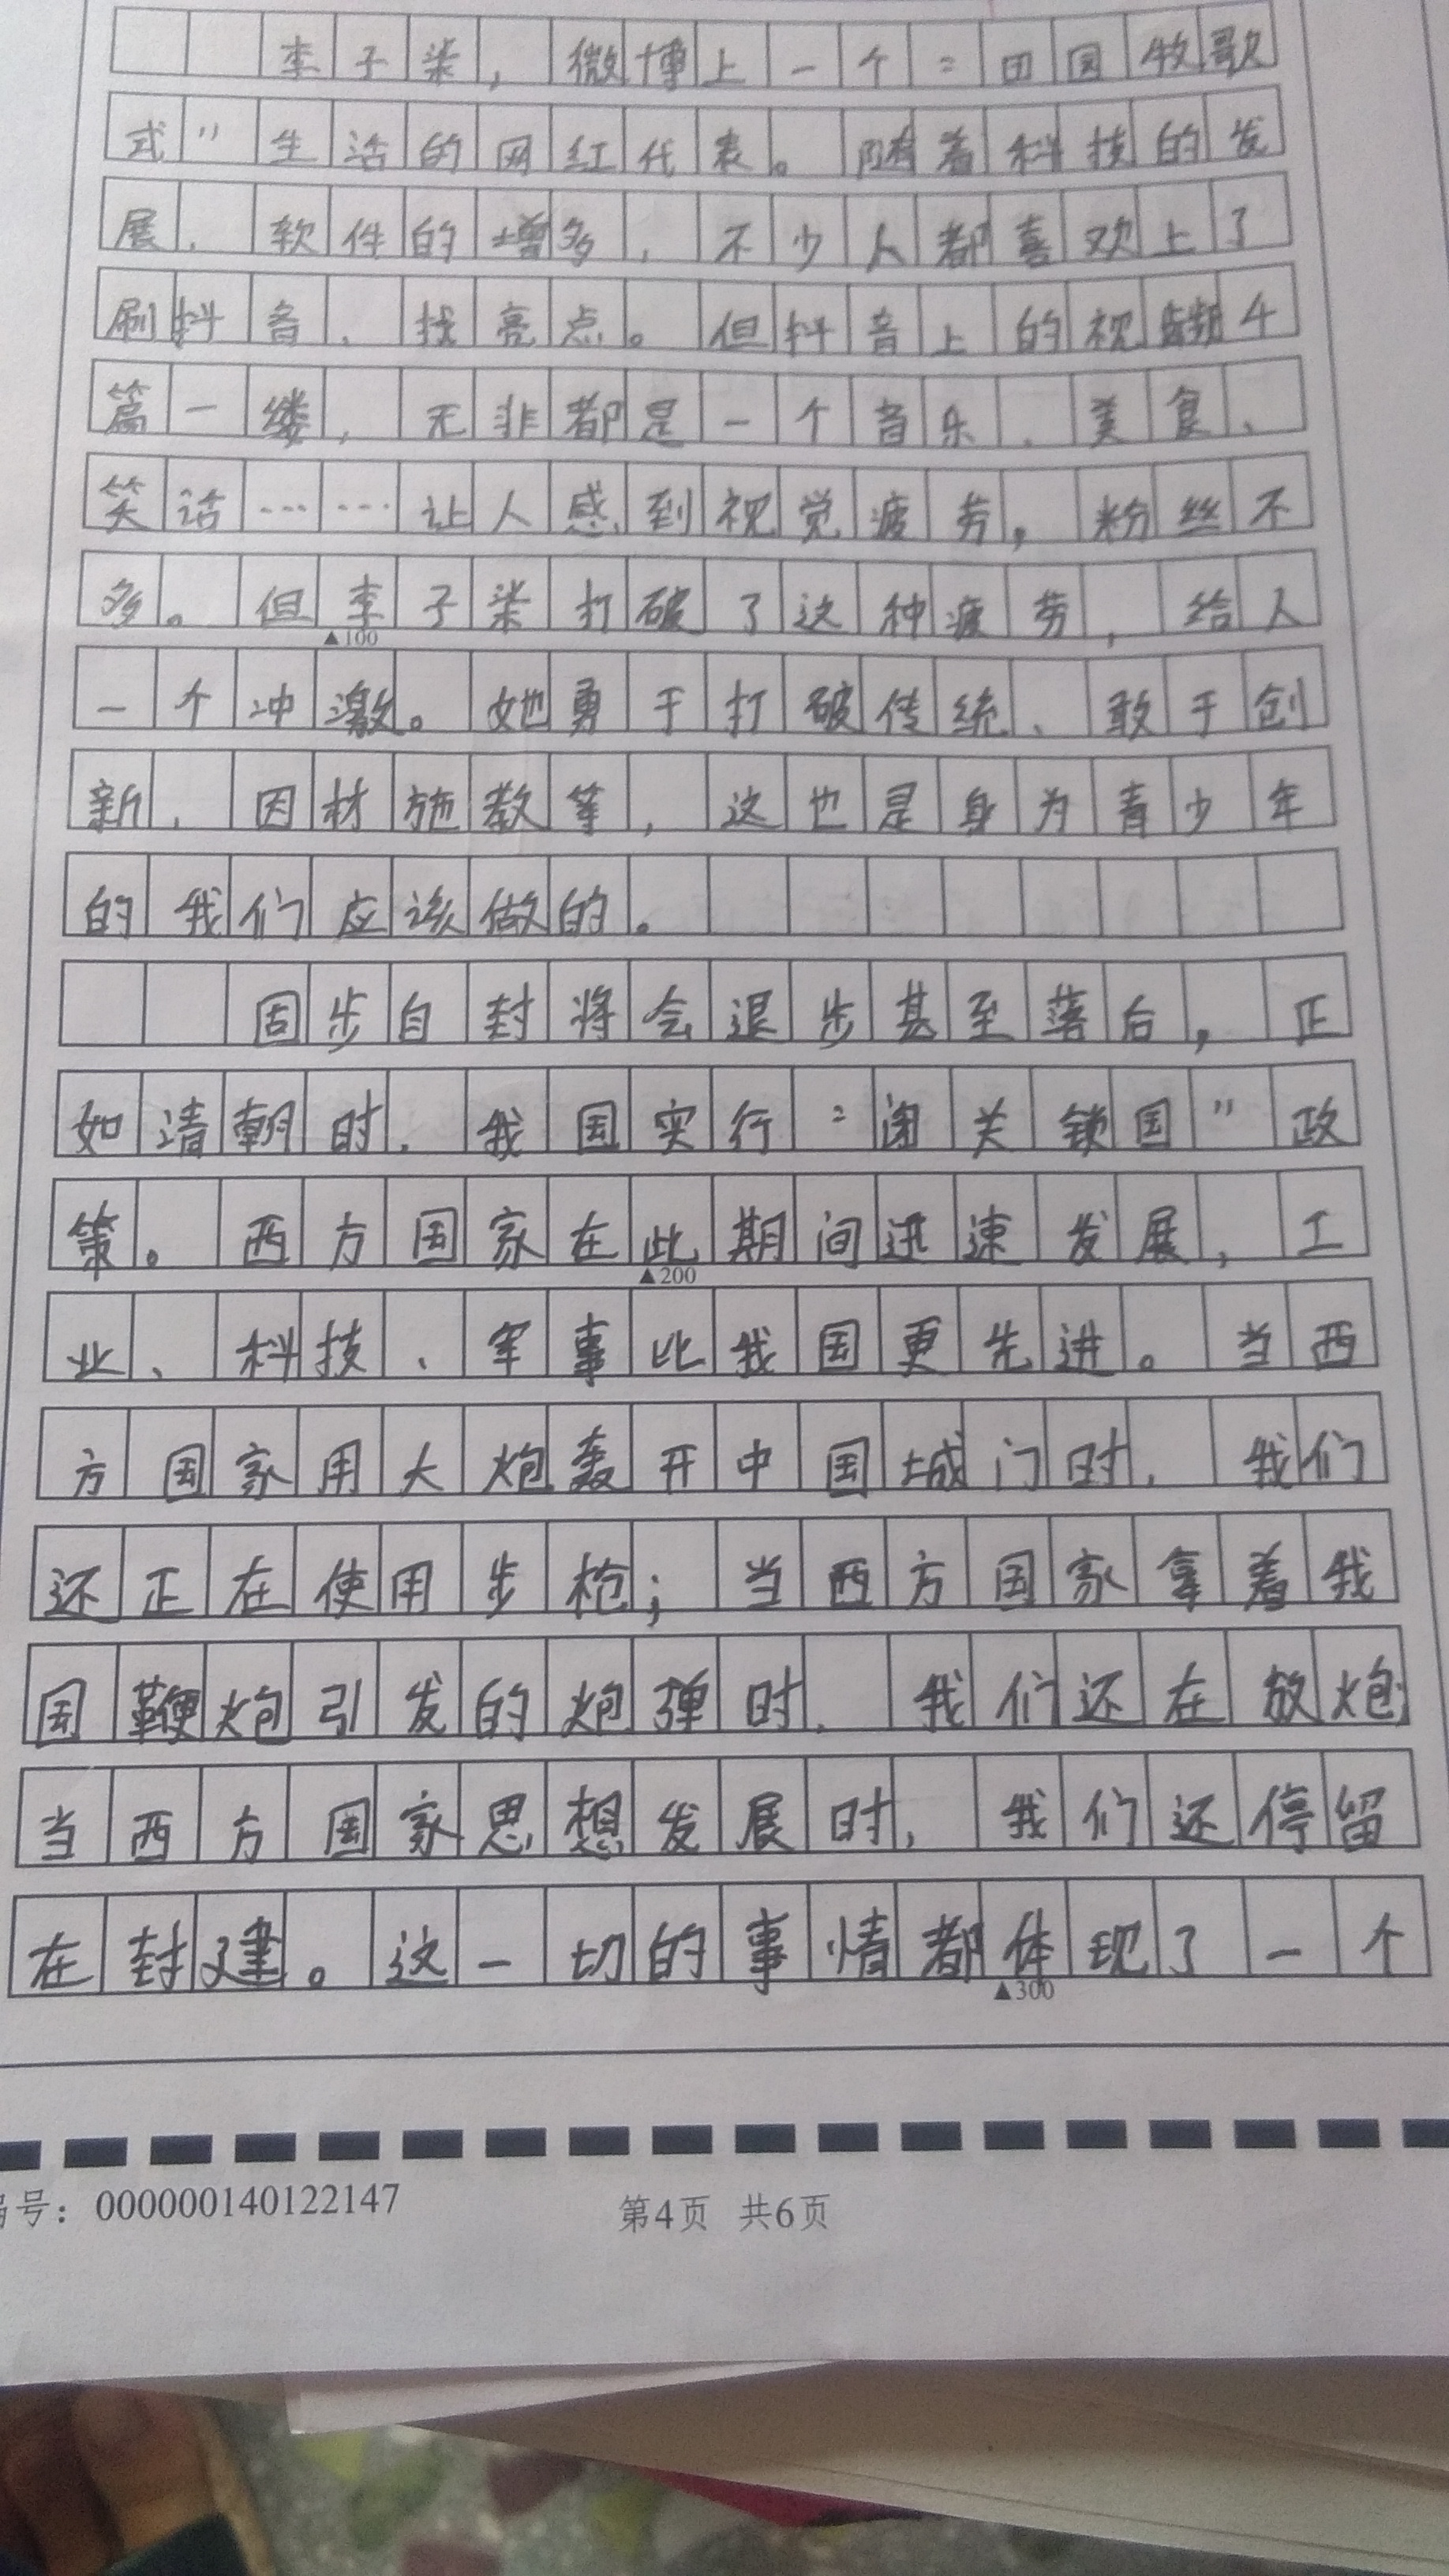 李子柒，微博上一个“田园牧歌
式”生活的网红代表。随着科技的发
展，软件的增多，不少人都喜欢上了
刷抖音、找亮点。但抖音上的视频千
篇一缕，无非都是一个音乐、美食、
笑话……让人感到视觉疲劳，粉丝不
多。但李子柒打破了这种疲劳，给人
▲100
一个冲激。她勇于打破传统、敢于创
新，因材施教等，这也是身为青少年
的我们应该做的。
固步自封将会退步甚至落后，正
如清朝时，我国实行“闭关锁国”政
策。西方国家在此期间迅速发展，工
▲200
业、科技、军事比我国更先进。当西
方国家用大炮轰开中国城门时，我们
还正在使用步枪；当西方国家拿着我
国鞭炮引发的炮弹时，我们还在放炮；
当西方国家思想发展时，我们还停留
在封建。这一切的事情都体现了一个
▲300
号：000000140122147
第4页 共6页